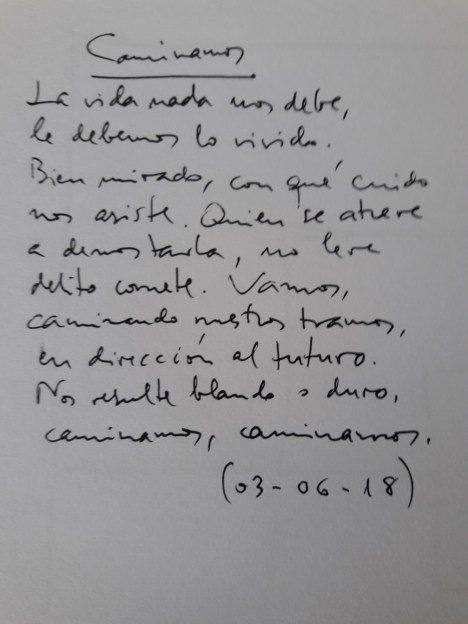 Caminamos
La vida nada nos debe,
le debemos lo vivido.
Bien mirado, con qué cuido
nos asiste. Quien se atreve
a denostarla, no leve
delito comete. Vamos,
caminando nuestros tramos,
en dirección al futuro.
Nos resulte blando o duro,
caminamos, caminamos.
(03-06-18)